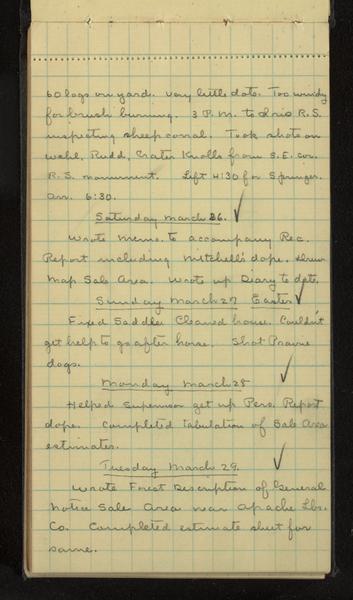 60 logs on yard. Very little dote. Too windy
for brush burning. 3 P.M. to Iris R.S.
inspecting sheep corral. Took shots on
Wahl, Rudd, Crater Knolls from S.E. cor.
R.S. monument. Left 4:30 for Springer.
Arr. 6:30.
Saturday March 26.
Wrote memo. to accompany Rec.
Report including Mitchell's dope. Drew
Map Sale Area. Wrote up Diary to date.
Sunday March 27 Easter
Fixed Saddle. Cleaned house. Couldn't
get help to go after horse. Shot Prairie
dogs.
Monday March 28
Helped Supervisor get up Pers. Report
dope. Completed tabulation of Sale Area
estimates.
Tuesday March 29.
Wrote Forest Description of General
Notice Sale Area near Apache Lbs.
Co. Completed estimate sheet for
same.